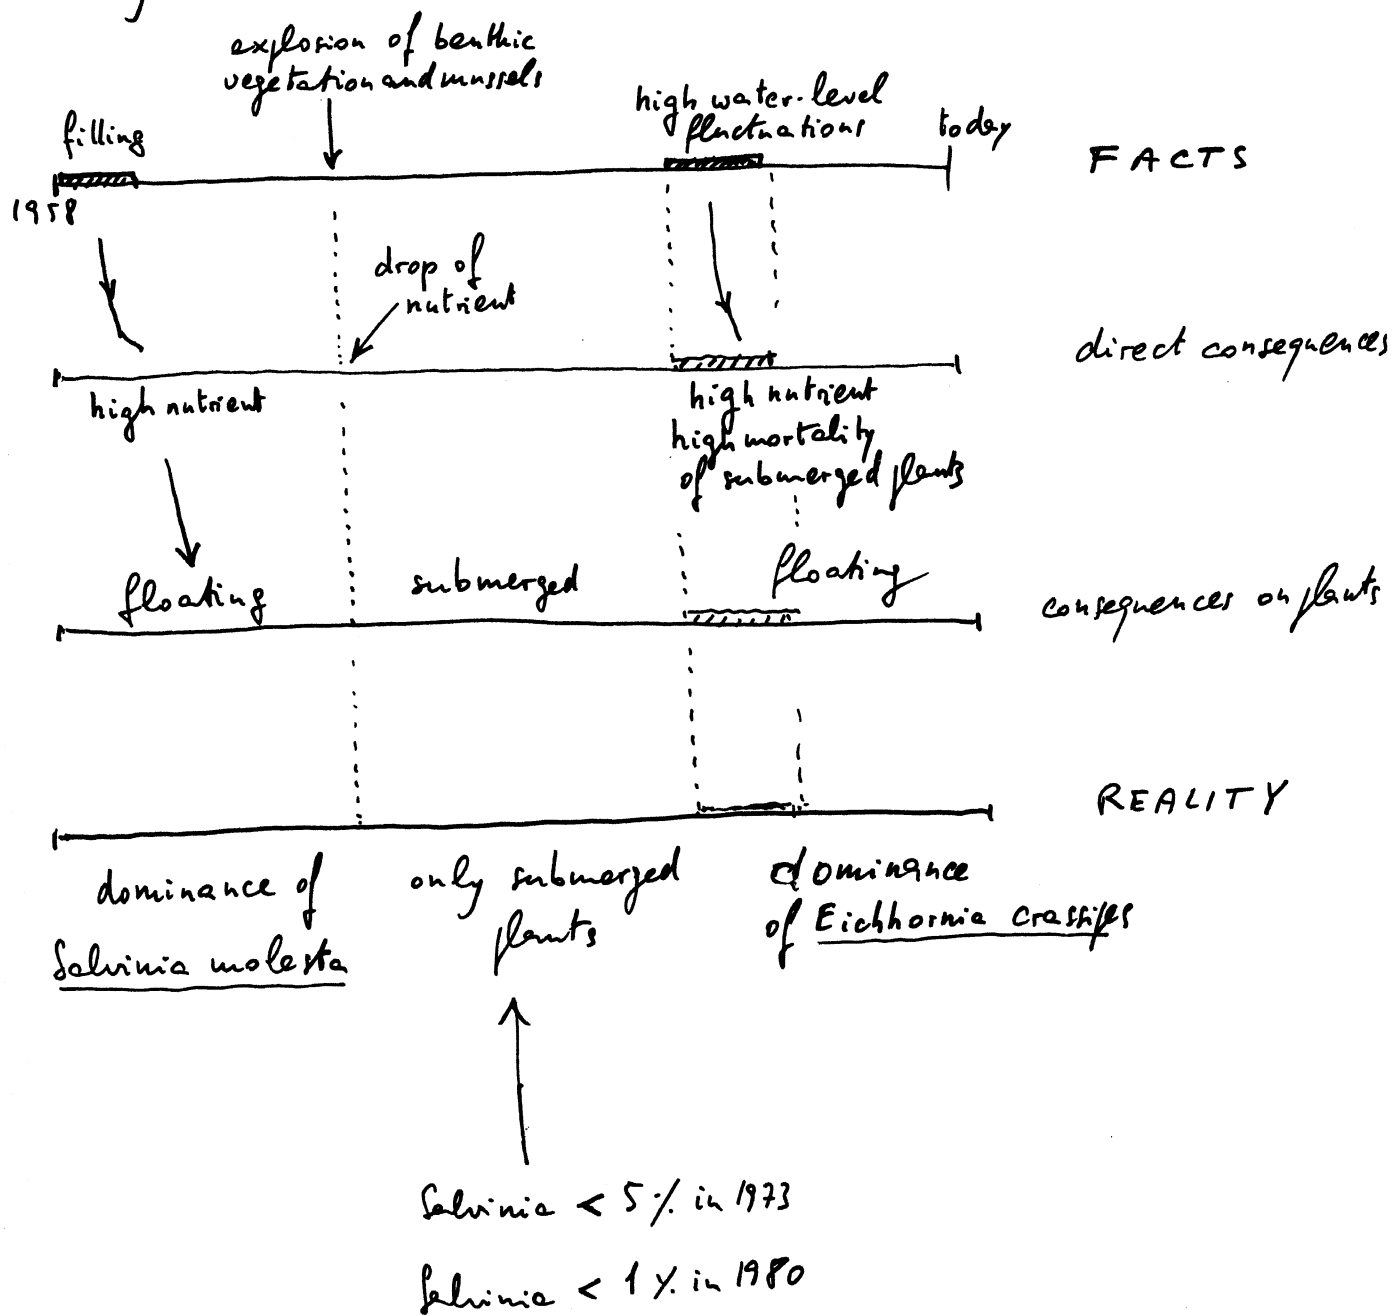 explosion of benthic
vegetation and mussels
filling
high water-level
fluctuations
today
FACTS
1958
drop of
nutrient
direct consequences
high nutrient
high nutrient
high mortality
of submerged plants
floating
submerged
floating
consequences on plants
REALITY
dominance of
Salvinia molesta
only submerged
plants
dominance
of Eichhornia crassipes
Salvinia < 5 % in 1973
Salvinia < 1 % in 1980